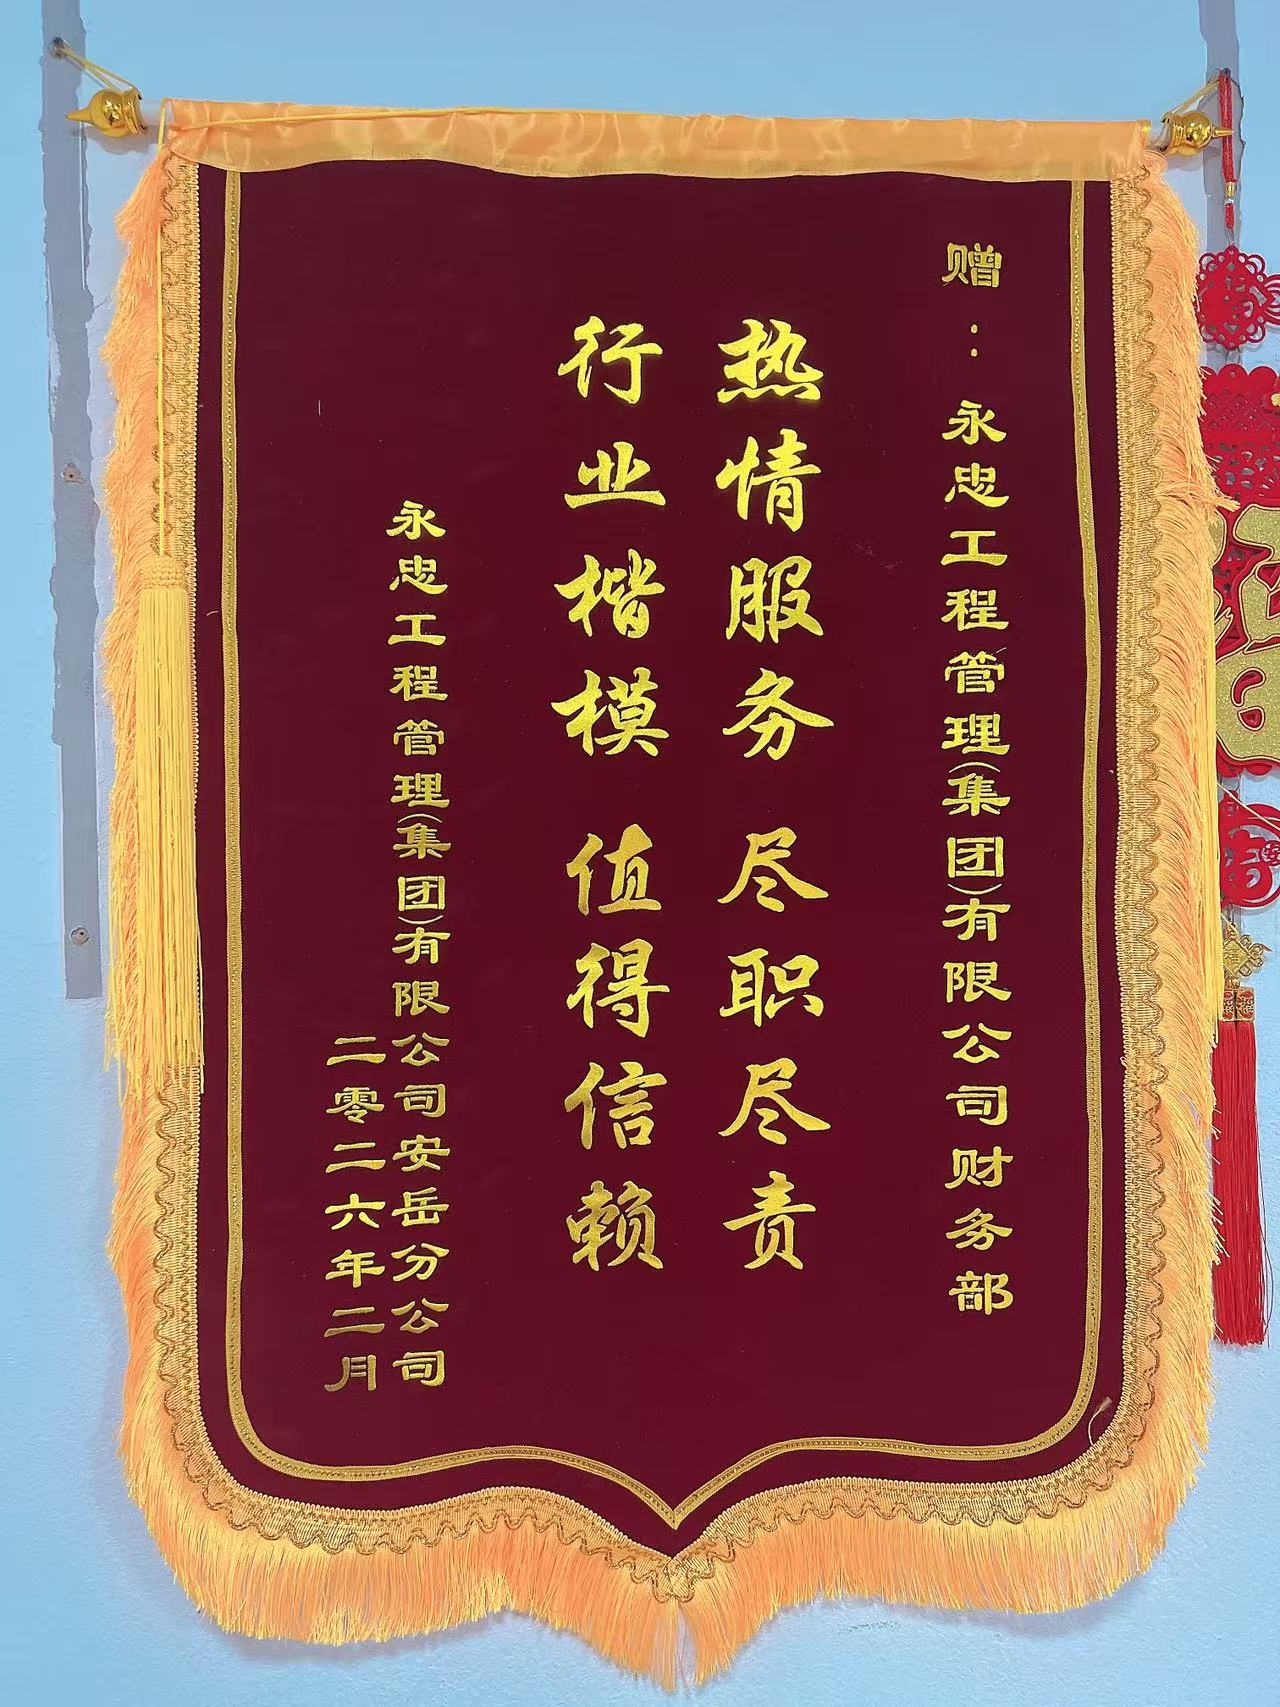 赠：永忠工程管理(集团)有限公司财务部
热情服务 尽职尽责
行业楷模 值得信赖
永忠工程管理(集团)有限公司安岳分公司
二零二六年二月